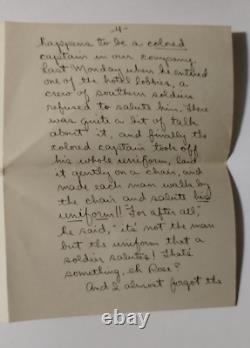 -4-
happens to be a colored
captain in our company.
Last Monday when he entered
one of the hotel lobbies, a
crew of southern soldiers
refused to salute him. There
was quite a bit of talk
about it, and finally the
colored captain took off
his whole uniform, laid
it gently on a chair, and
made each man walk by
the chair and salute his
uniform!! "For after all,"
he said, "it's not the man
but the uniform that a
soldier salutes! That's
something, eh Rose?
And I almost forgot the